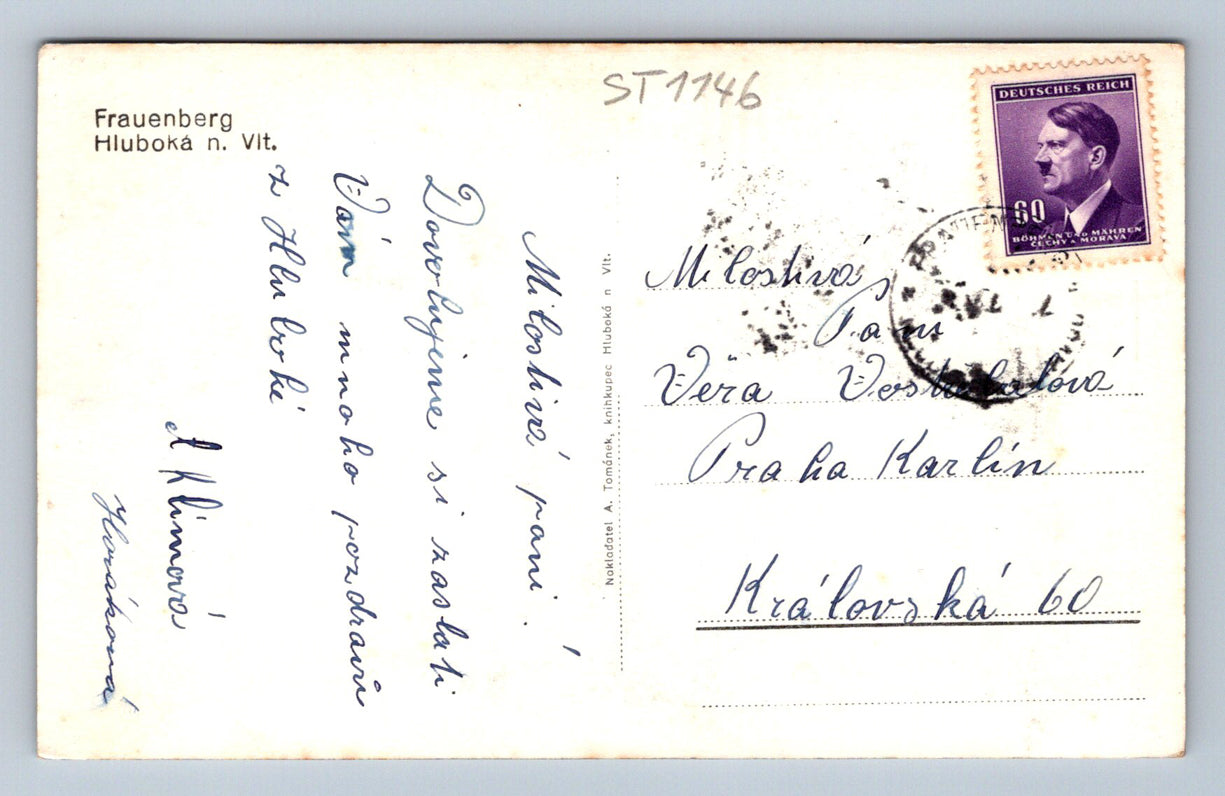 Frauenberg
Hluboká n. Vlt.
ST1146
DEUTSCHES REICH
60
BÖHMEN UND MÄHREN
ČECHY A MORAVA
Milostivá paní!
Dovolujeme si zaslati
Vám mnoho pozdravů
z Hluboké
A Klímová
Horáková
Nakladatel A. Tománek, knihkupec Hluboká n Vlt.
Milostivá
Paní
Věra
Praha Karlín
Královská 60